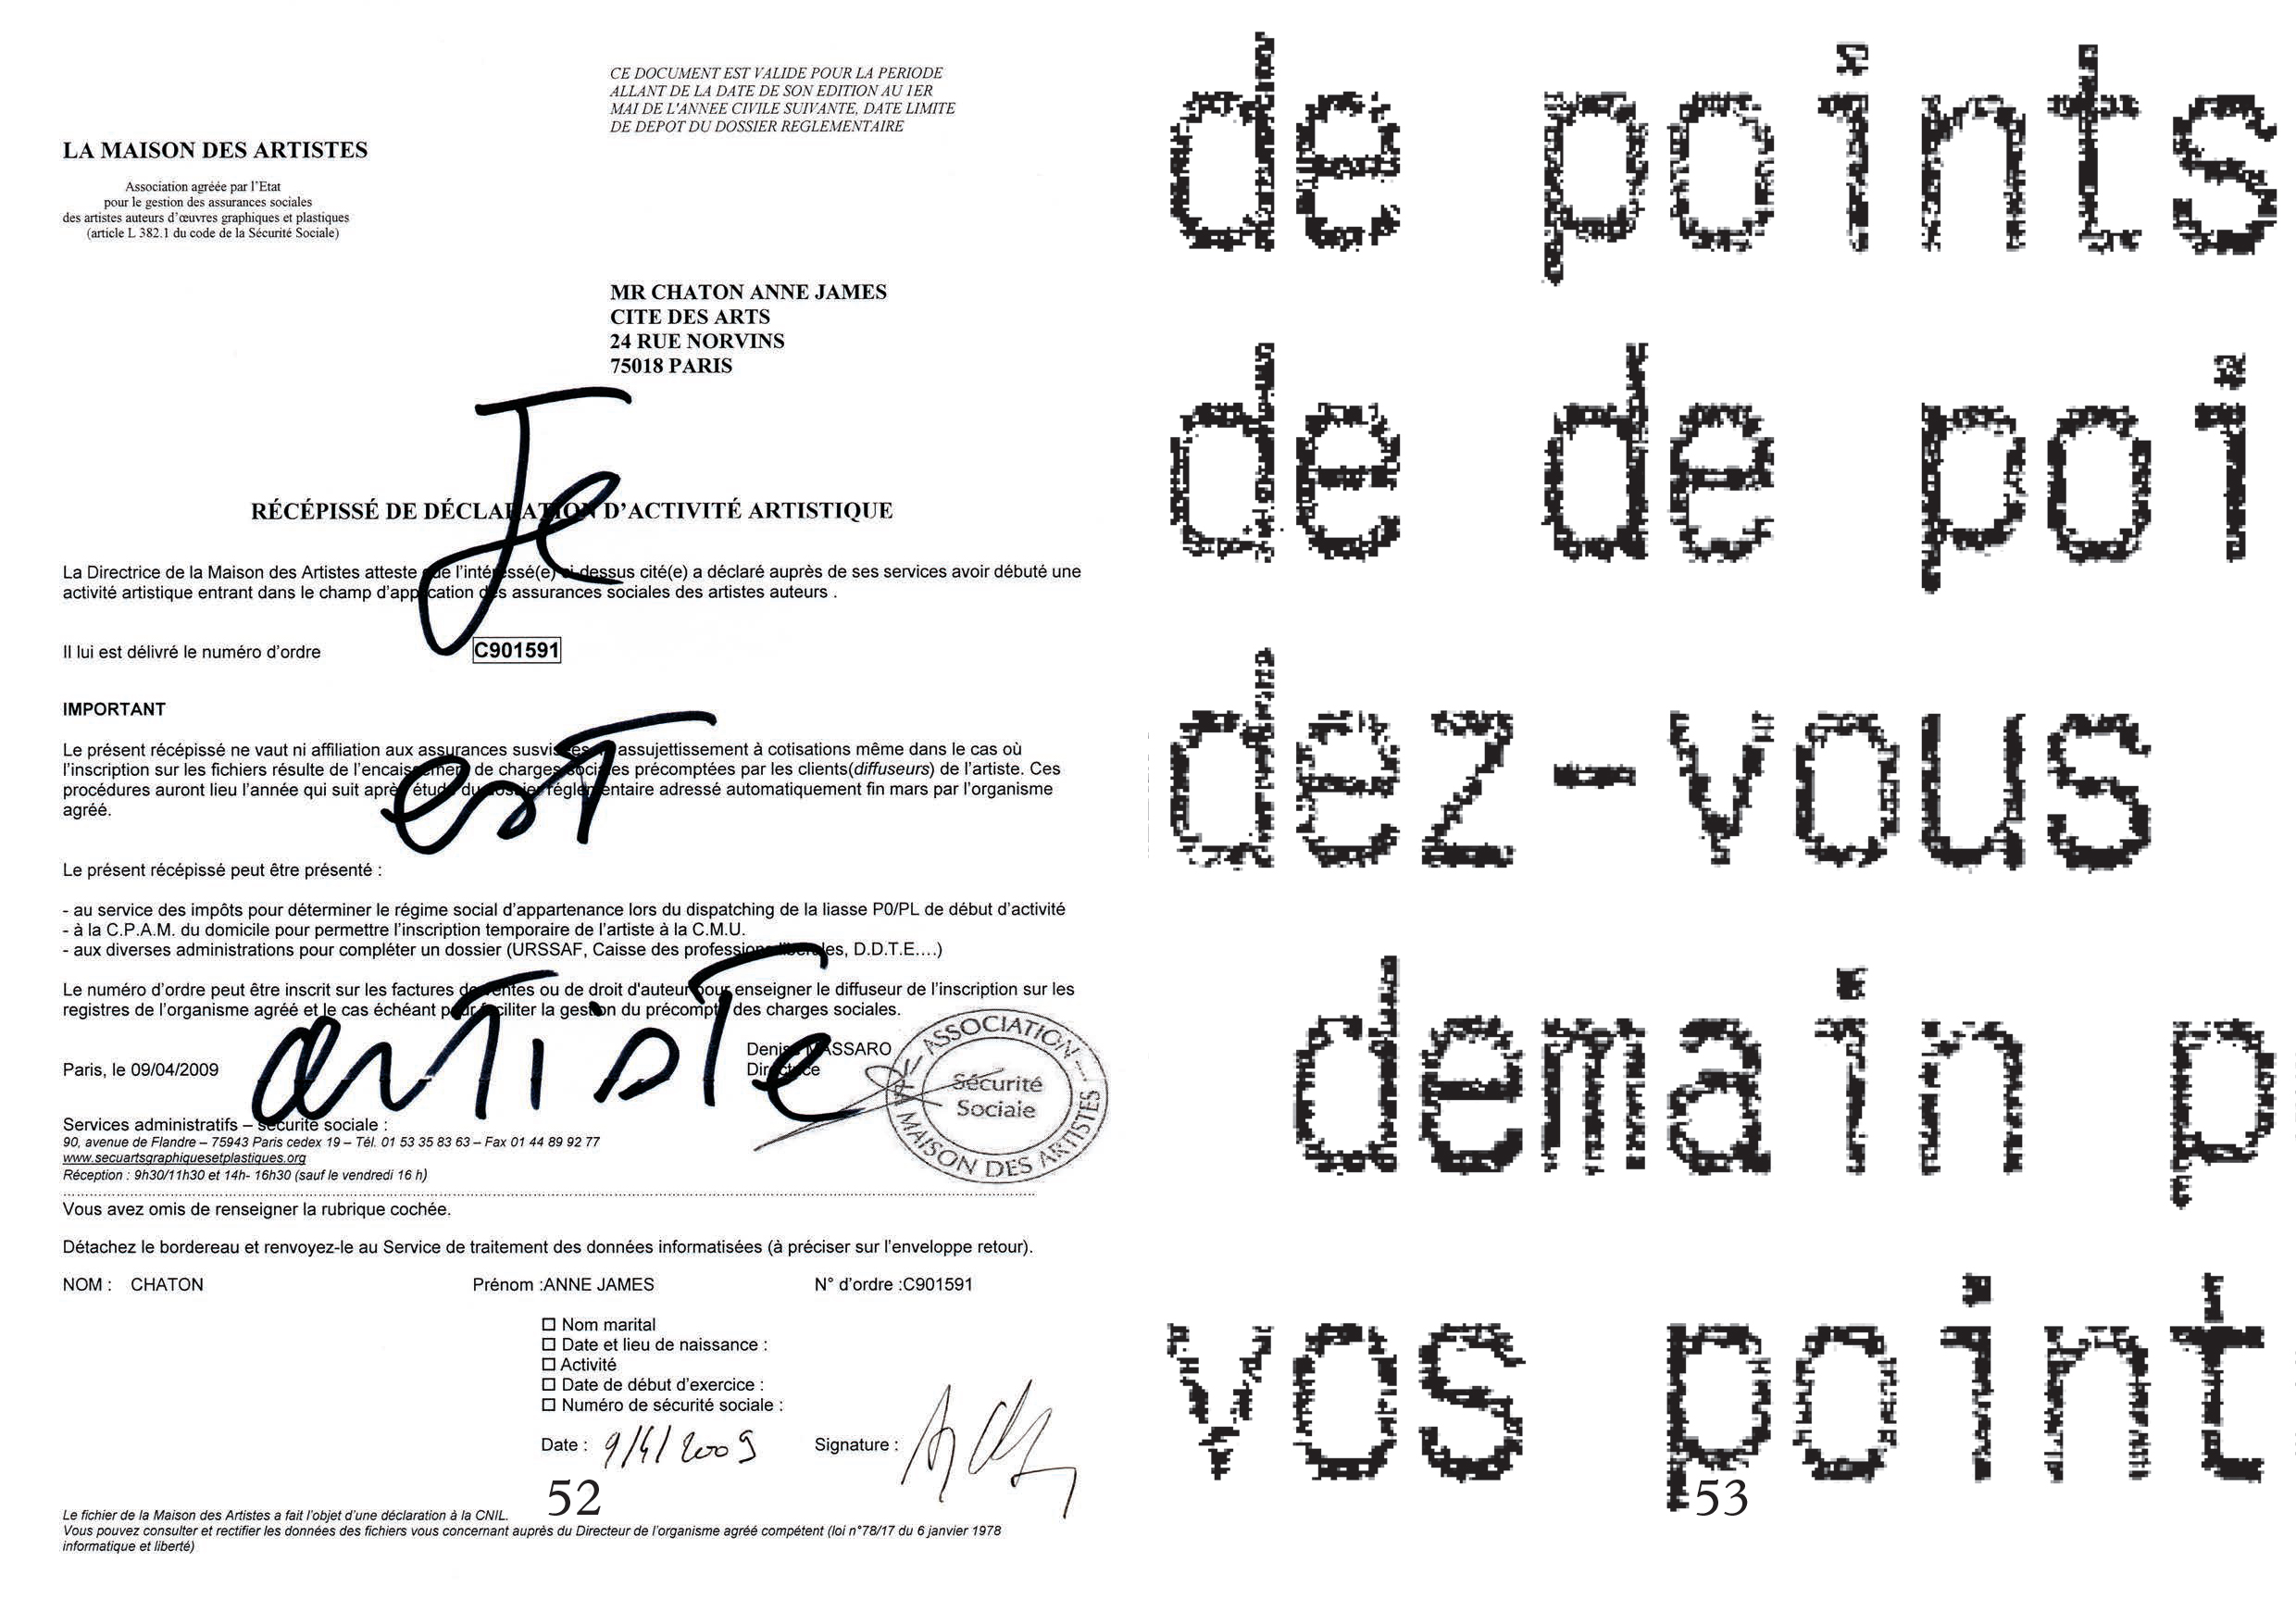 CE DOCUMENT EST VALIDE POUR LA PERIODE
ALLANT DE LA DATE DE SON EDITION AU 1ER
MAI DE L'ANNEE CIVILE SUIVANTE, DATE LIMITE
DE DEPOT DU DOSSIER REGLEMENTAIRE
LA MAISON DES ARTISTES
Association agréée par l'Etat
pour le gestion des assurances sociales
des artistes auteurs d'œuvres graphiques et plastiques
(article L 382.1 du code de la Sécurité Sociale)
MR CHATON ANNE JAMES
CITE DES ARTS
24 RUE NORVINS
75018 PARIS
Je
RÉCÉPISSÉ DE DÉCLARATION D'ACTIVITÉ ARTISTIQUE
La Directrice de la Maison des Artistes atteste que l'intéressé(e) ci dessus cité(e) a déclaré auprès de ses services avoir débuté une
activité artistique entrant dans le champ d'application des assurances sociales des artistes auteurs .
Il lui est délivré le numéro d'ordre C901591
IMPORTANT
est
Le présent récépissé ne vaut ni affiliation aux assurances susvisées assujettissement à cotisations même dans le cas où
l'inscription sur les fichiers résulte de l'encaissement de charges sociales précomptées par les clients(diffuseurs) de l'artiste. Ces
procédures auront lieu l'année qui suit après étude du dossier réglementaire adressé automatiquement fin mars par l'organisme
agréé.
Le présent récépissé peut être présenté :
- au service des impôts pour déterminer le régime social d'appartenance lors du dispatching de la liasse P0/PL de début d'activité
- à la C.P.A.M. du domicile pour permettre l'inscription temporaire de l'artiste à la C.M.U.
- aux diverses administrations pour compléter un dossier (URSSAF, Caisse des professions libérales, D.D.T.E....)
artiste
Le numéro d'ordre peut être inscrit sur les factures de ventes ou de droit d'auteur pour enseigner le diffuseur de l'inscription sur les
registres de l'organisme agréé et le cas échéant pour faciliter la gestion du précompte des charges sociales.
Denise MASSARO
Directrice
Paris, le 09/04/2009
ASSOCIATION
Sécurité
Sociale
LA MAISON DES ARTISTES
Services administratifs – sécurité sociale :
90, avenue de Flandre – 75943 Paris cedex 19 – Tél. 01 53 35 83 63 – Fax 01 44 89 92 77
www.secuartsgraphiquesetplastiques.org
Réception : 9h30/11h30 et 14h- 16h30 (sauf le vendredi 16 h)
Vous avez omis de renseigner la rubrique cochée.
Détachez le bordereau et renvoyez-le au Service de traitement des données informatisées (à préciser sur l'enveloppe retour).
NOM : CHATON Prénom :ANNE JAMES N° d'ordre :C901591
Nom marital
Date et lieu de naissance :
Activité
Date de début d'exercice :
Numéro de sécurité sociale :
Date : 9/4/2009 Signature :
52
Le fichier de la Maison des Artistes a fait l'objet d'une déclaration à la CNIL.
Vous pouvez consulter et rectifier les données des fichiers vous concernant auprès du Directeur de l'organisme agréé compétent (loi n°78/17 du 6 janvier 1978
informatique et liberté)
de points
de de poi
dez-vous
demain p
vos point
53